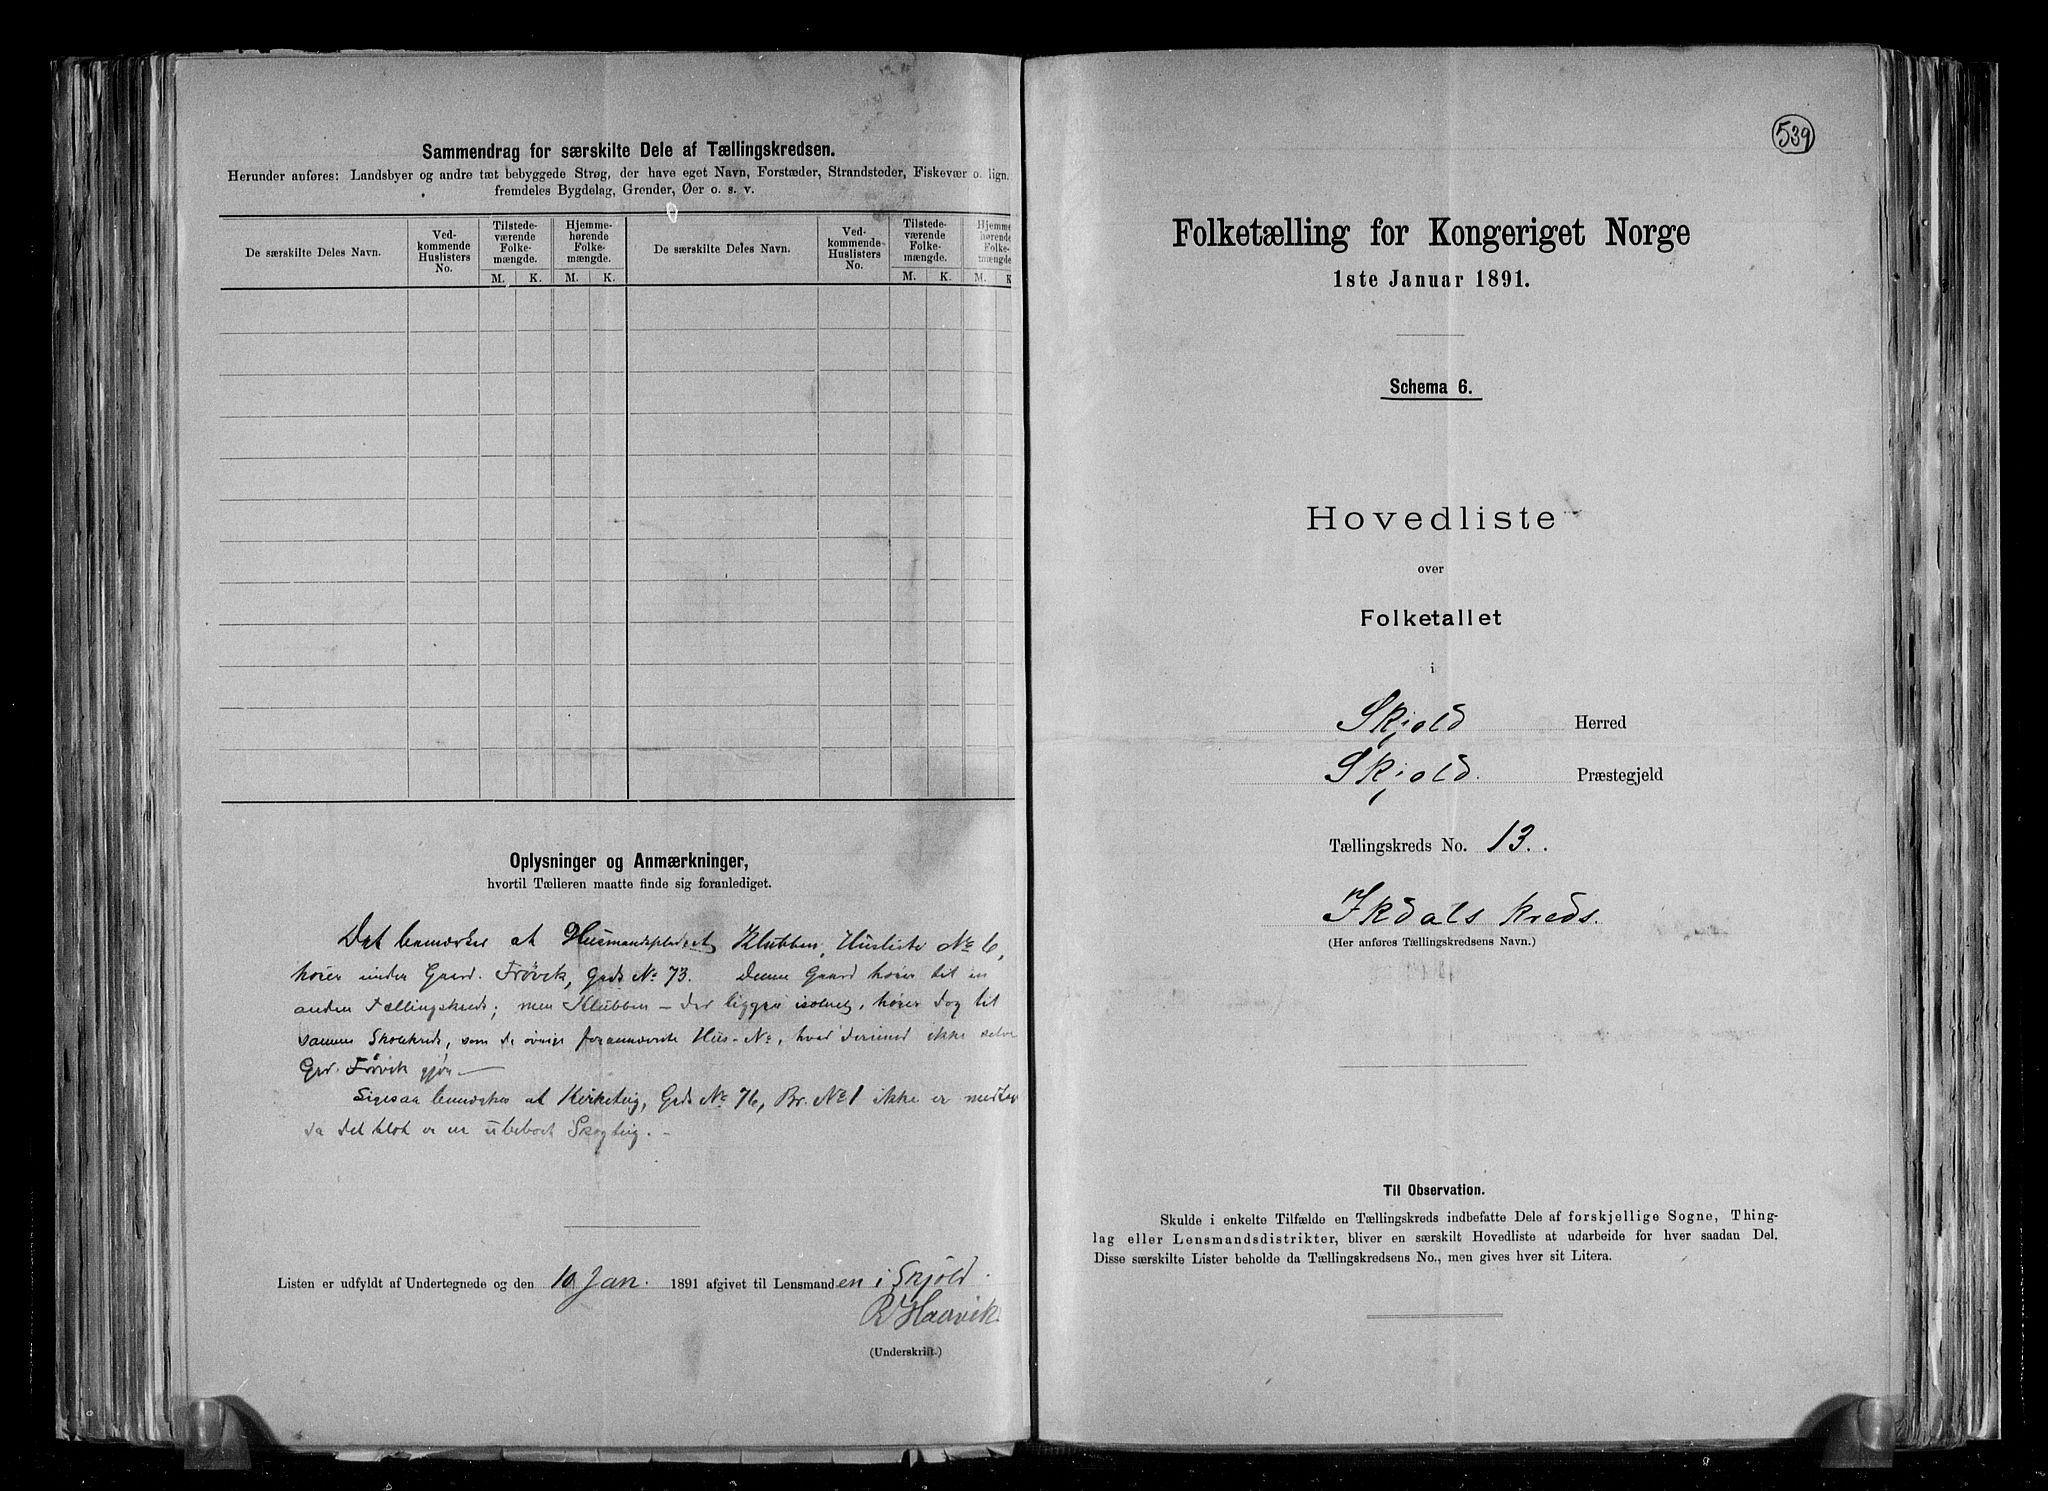 Sammendrag for særskilte Dele af Tællingskredsen.
Herunder anføres: Landsbyer og andre tæt bebyggede Strøg, der have eget Navn, Forstæder, Strandsteder, Fiskevær o. lign.
fremdeles Bygdelag, Grender, Øer o. s. v.
De særskilte Deles Navn.
Ved-
kommende
Huslisters
No.
Tilstede-
værende
Folke-
mængde.
Hjemme-
hørende
Folke-
mængde.
M. K. M. K.
De særskilte Deles Navn.
Ved-
kommende
Huslisters
No.
Tilstede-
værende
Folke-
mængde.
Hjemme-
hørende
Folke-
mængde
M. K. M. K
Oplysninger og Anmærkninger,
hvortil Tælleren maatte finde sig foranlediget.
Det bemærkes at Husmandspladset Klubben, Husliste No 6,
hører under Gaard. Frøvik, Grds No 73. Denne Gaard hører til en
anden Tællingskreds; men Klubben – der ligger isoleret, hører dog til
samme Skolekreds, som de øvrige forannævnte Hus-No, hvad derimod ikke selve
Grd. Frøvik gjør –
Ligesaa bemærkes at Kirketeig, Grds No 76, Br. No 1 ikke er medtag
da det blot er en ubeboet Skogteig. –
Listen er udfyldt af Undertegnede og den 10 Jan. 1891 afgivet til Lensmanden i Skjold.
R Haavik
(Underskrift.)
539
Folketælling for Kongeriget Norge
1ste Januar 1891.
Schema 6.
Hovedliste
over
Folketallet
i
Skjold Herred
Skjold. Præstegjeld
Tællingskreds No. 13.
Ikdals kreds.
(Her anføres Tællingskredsens Navn.)
Til Observation.
Skulde i enkelte Tilfælde en Tællingskreds indbefatte Dele af forskjellige Sogne, Thing-
lag eller Lensmandsdistrikter, bliver en særskilt Hovedliste at udarbeide for hver saadan Del.
Disse særskilte Lister beholde da Tællingskredsens No., men gives hver sit Litera.